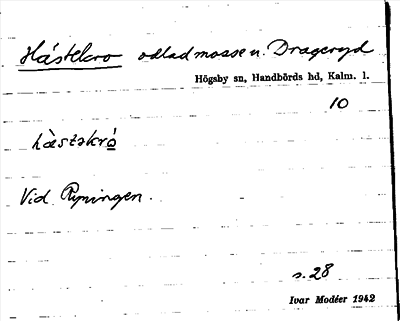 Hästekro odlad mosse u. Drageryd
Högsby sn, Handbörds hd, Kalm. l.
10
hàstəkró
Vid Ryningen.
s. 28
Ivar Modéer 1942